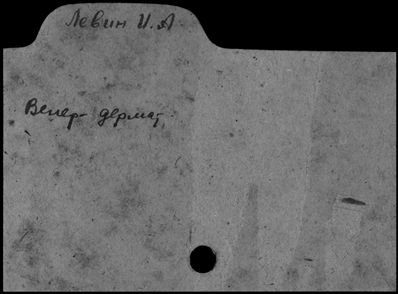 Левин И. А.
Венер-дермат.